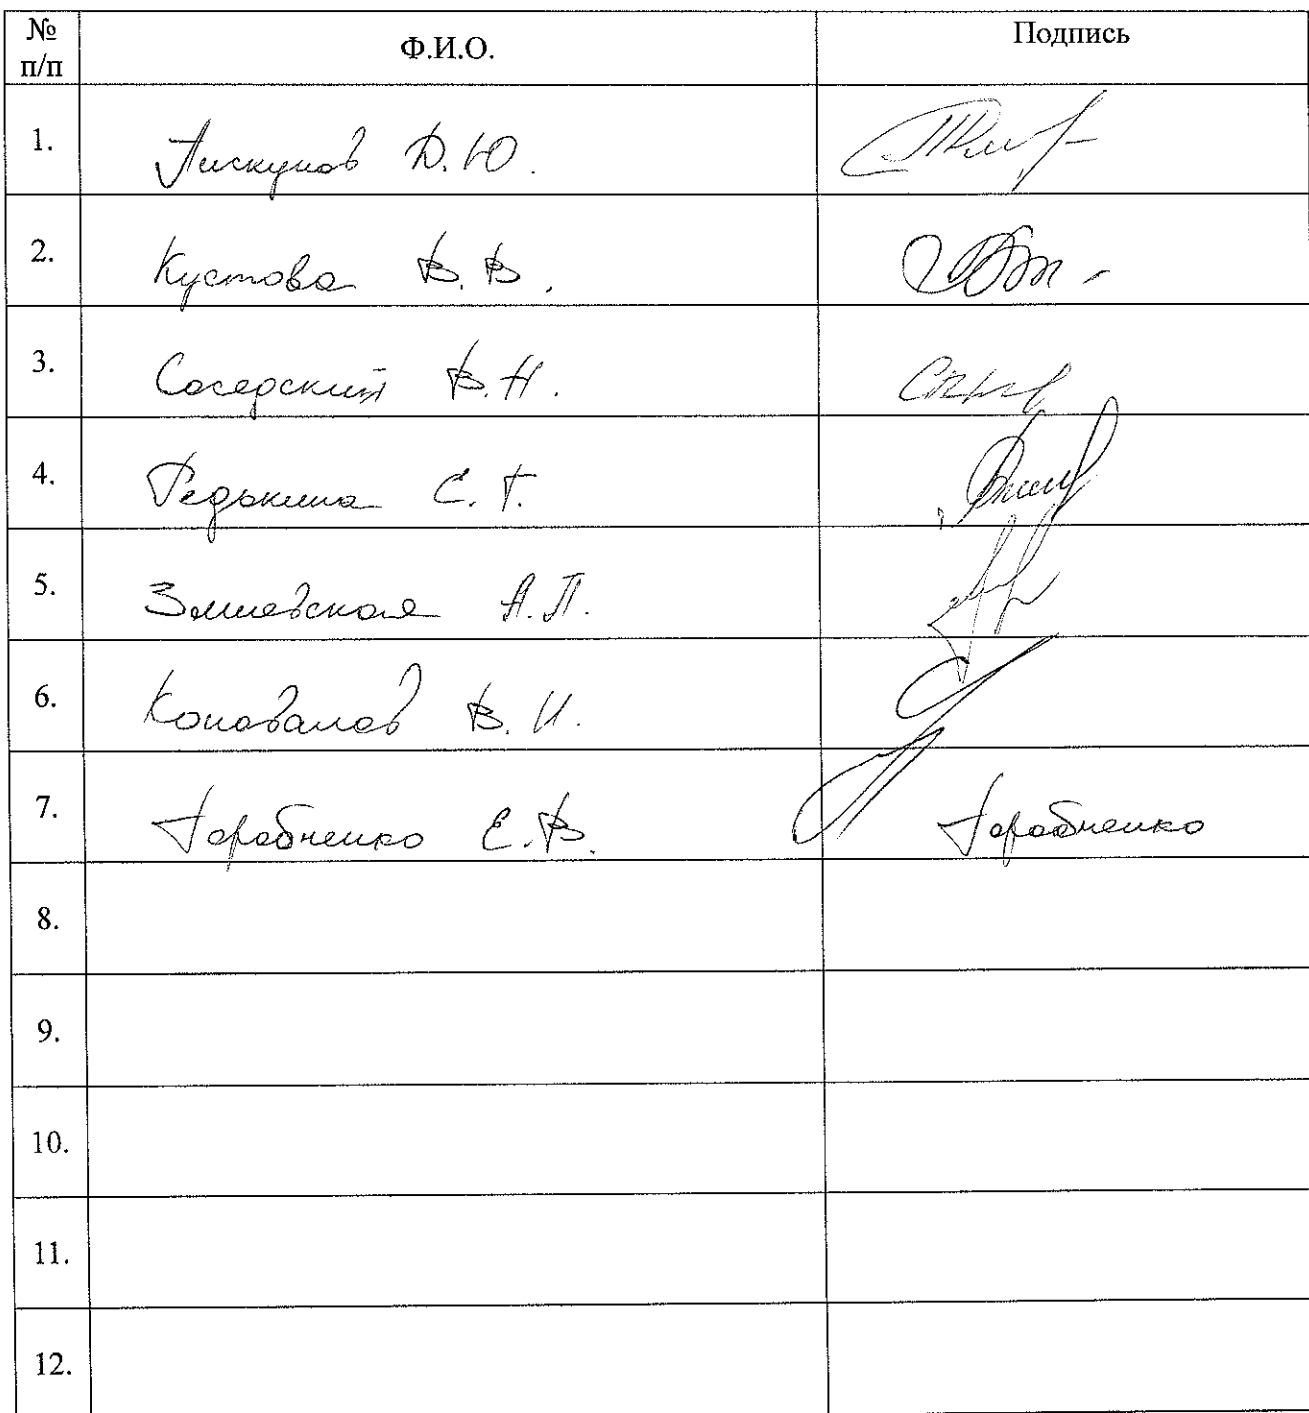 № п/п Ф.И.О. Подпись
1. Пискунов Д.Ю.
2. Кустова В.В.
3. Соседский В.Н.
4. Редькина С.Г.
5. Змиевская А.П.
6. Коновалов В.И.
7. Горобченко Е.В. Горобченко
8.
9.
10.
11.
12.